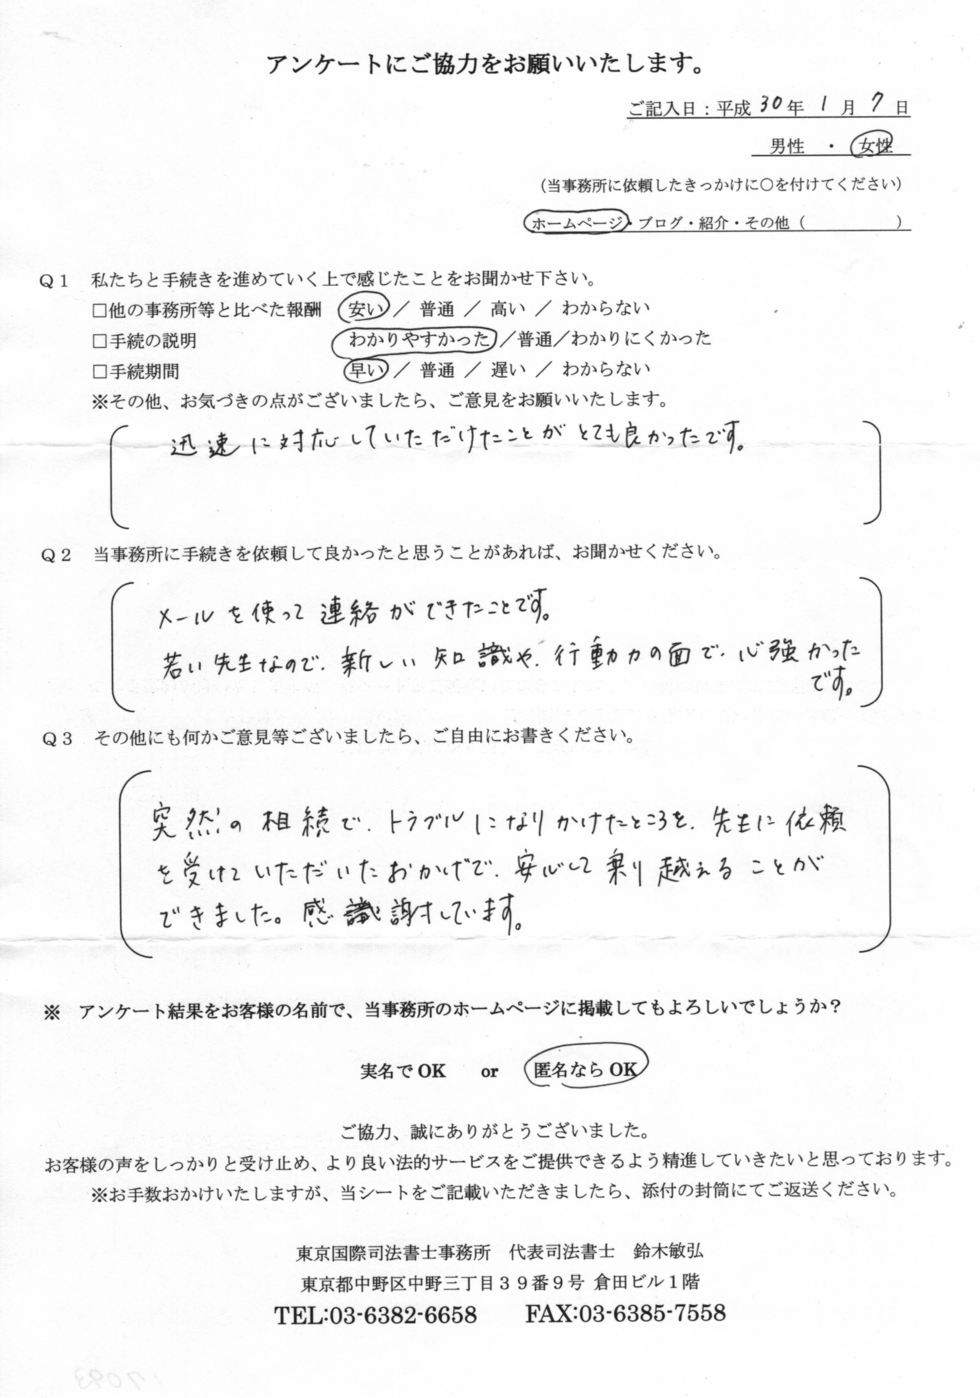 アンケートにご協力をお願いいたします。
ご記入日：平成 30 年 1 月 7 日
男性 ・ 女性
（当事務所に依頼したきっかけに○を付けてください）
ホームページ・ブログ・紹介・その他（　　　　　）
Q1 私たちと手続きを進めていく上で感じたことをお聞かせ下さい。
□他の事務所等と比べた報酬 安い ／ 普通 ／ 高い ／ わからない
□手続の説明 わかりやすかった／普通／わかりにくかった
□手続期間 早い ／ 普通 ／ 遅い ／ わからない
※その他、お気づきの点がございましたら、ご意見をお願いいたします。
迅速に対応していただけたことがとても良かったです。
Q2 当事務所に手続きを依頼して良かったと思うことがあれば、お聞かせください。
メールを使って連絡ができたことです。
若い先生なので、新しい知識や、行動力の面で、心強かった
です。
Q3 その他にも何かご意見等ございましたら、ご自由にお書きください。
突然の相続で、トラブルになりかけたところを、先生に依頼
を受けていただいたおかげで、安心して乗り越えることが
できました。感謝しています。
※ アンケート結果をお客様の名前で、当事務所のホームページに掲載してもよろしいでしょうか？
実名でOK or 匿名ならOK
ご協力、誠にありがとうございました。
お客様の声をしっかりと受け止め、より良い法的サービスをご提供できるよう精進していきたいと思っております。
※お手数おかけいたしますが、当シートをご記載いただきましたら、添付の封筒にてご返送ください。
東京国際司法書士事務所 代表司法書士 鈴木敏弘
東京都中野区中野三丁目３９番９号 倉田ビル１階
TEL:03-6382-6658 FAX:03-6385-7558